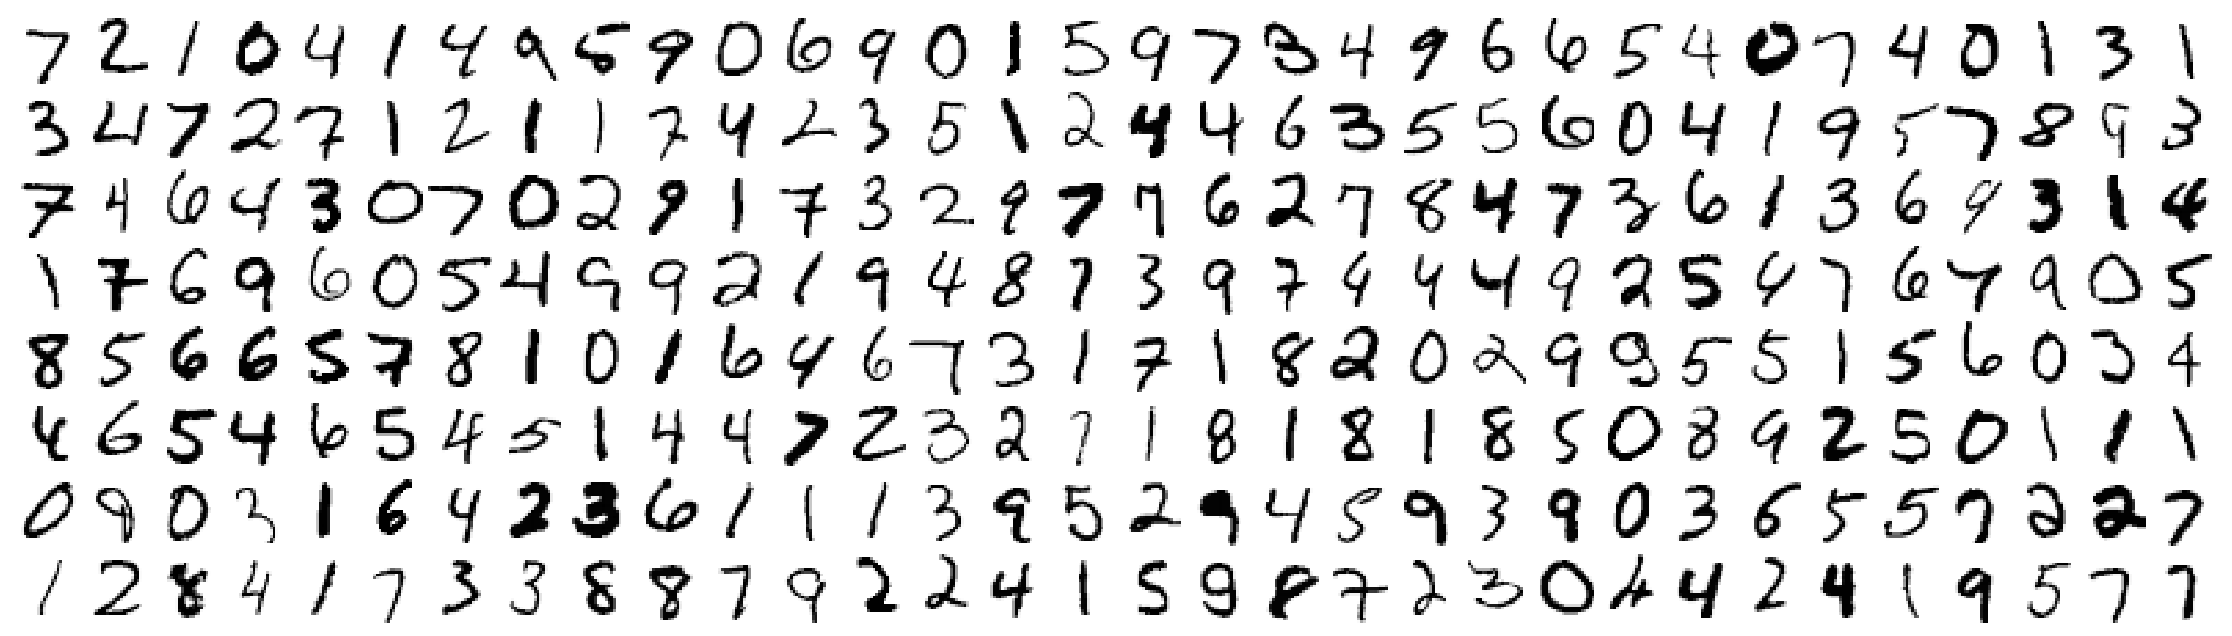 7 2 1 0 4 1 4 9 5 9 0 6 9 0 1 5 9 7 3 4 9 6 6 5 4 0 7 4 0 1 3 1
3 4 7 2 7 1 2 1 1 7 4 2 3 5 1 2 4 4 6 3 5 5 6 0 4 1 9 5 7 8 9 3
7 4 6 4 3 0 7 0 2 9 1 7 3 2 9 7 7 6 2 7 8 4 7 3 6 1 3 6 9 3 1 4
1 7 6 9 6 0 5 4 9 9 2 1 9 4 8 7 3 9 7 4 4 4 9 2 5 4 7 6 7 9 0 5
8 5 6 6 5 7 8 1 0 1 6 4 6 7 3 1 7 1 8 2 0 2 9 9 5 5 1 5 6 0 3 4
4 6 5 4 6 5 4 5 1 4 4 7 2 3 2 7 1 8 1 8 1 8 5 0 8 9 2 5 0 1 1 1
0 9 0 3 1 6 4 2 3 6 1 1 1 3 9 5 2 9 4 5 9 3 9 0 3 6 5 5 7 2 2 7
1 2 8 4 1 7 3 3 8 8 7 9 2 2 4 1 5 9 8 7 2 3 0 4 4 2 4 1 9 5 7 7